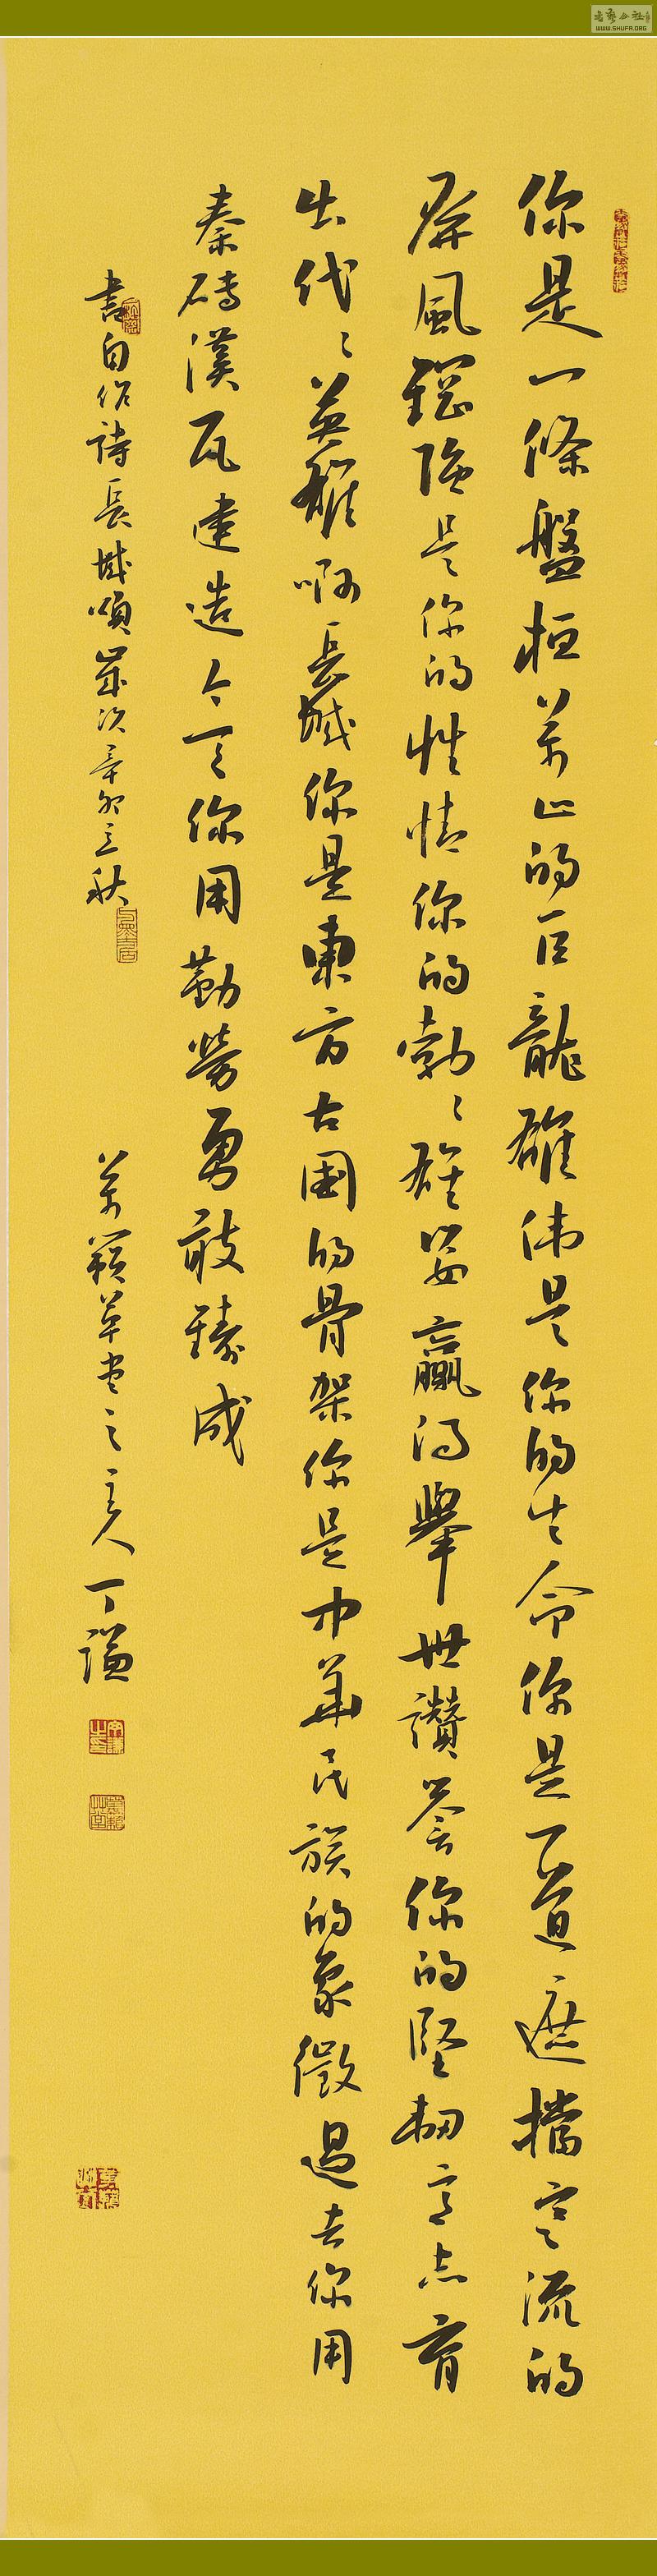 你是一條盤桓萬山的巨龍雄伟是你的生命你是一道遮擋寒流的
屏風鋼強是你的性情你的勃〻雄姿贏得舉世讚譽你的堅韌意志育
出代〻英雄啊長城你是東方古國的骨架你是中華民族的象徵過去你用
秦磚漢瓦建造今天你用勤勞勇敢鑄成
書自作詩長城頌歲次辛卯之秋
萬籟草堂之主人丁謐
WWW.SHUFA.ORG